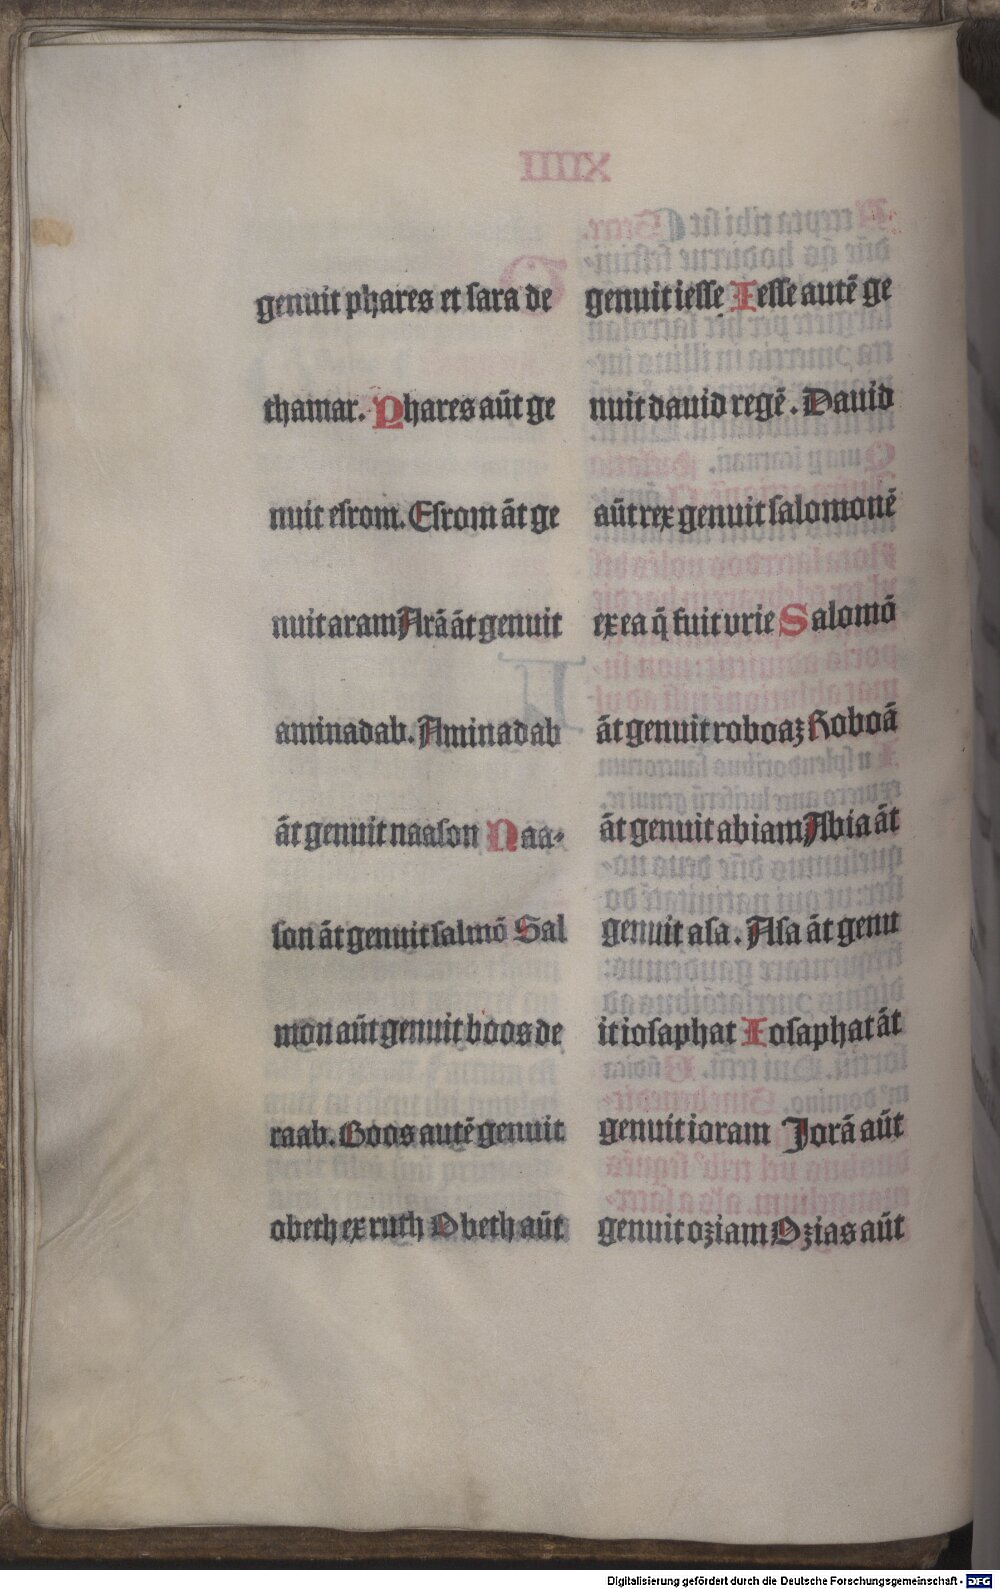 genuit phares et sara de
thamar. Phares aūt ge
nuit esrom. Esrom āt ge
nuit aram Arā āt genuit
aminadab. Aminadab
āt genuit naason Naa-
son āt genuit salmō Sal
mon aūt genuit boos de
raab. Boos autē genuit
obeth ex ruth Obeth aūt
genuit iesse Iesse autē ge
nuit dauid regē. Dauid
aūt rex genuit salomonē
ex ea q̄ fuit vrie Salomō
āt genuit roboaz Roboā
āt genuit abiam Abia āt
genuit asa. Asa āt genu
it iosaphat Iosaphat āt
genuit ioram Jorā aūt
genuit oziam Ozias aūt
Digitalisierung gefördert durch die Deutsche Forschungsgemeinschaft - DFG